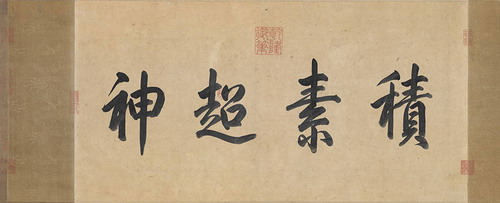 積素超神